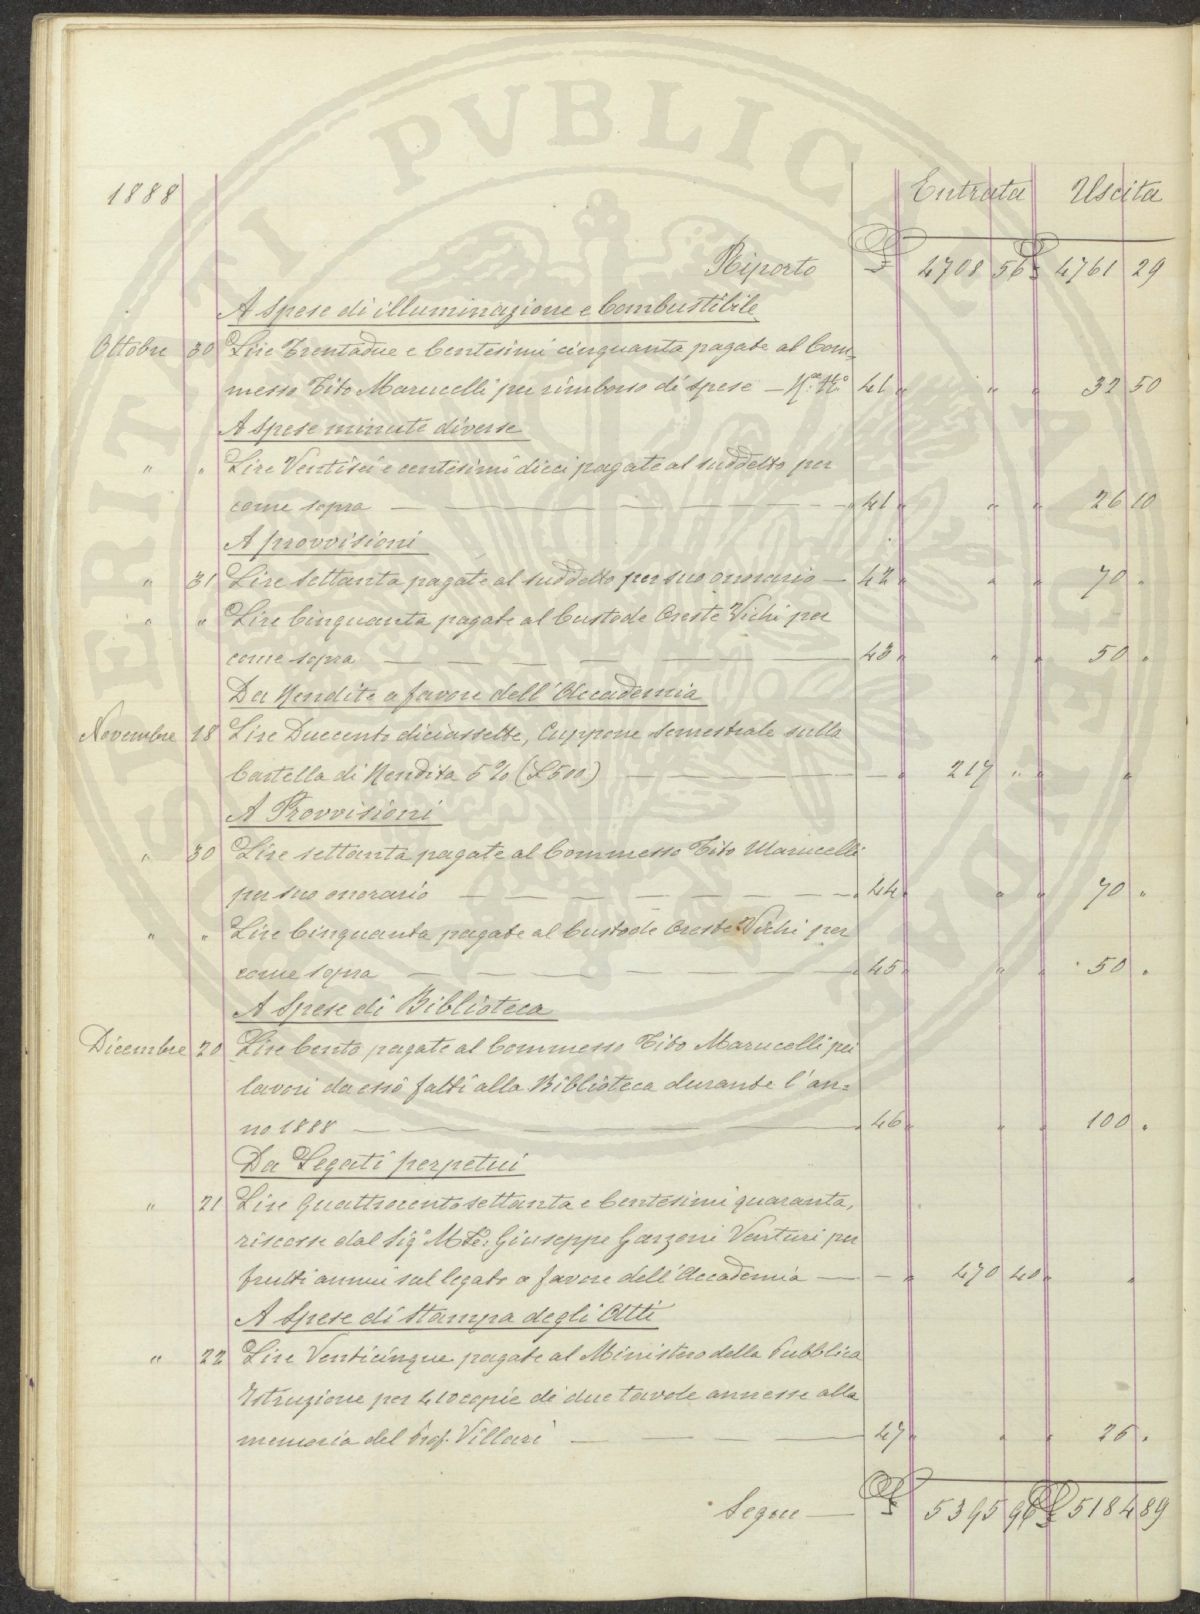 1888 Entrata Uscita
Riporto £ 4708 56 £ 4761 29
A Spese di illuminazione e Combustibile
Ottobre 30 Lire Trentadue e Centesimi cinquanta pagate al Com=
messo Tito Marucelli per rimborso di spese — 41 " " " 32 50
A Spese minute diverse
" " Lire Ventisei e centesimi dieci pagate al suddetto per
come sopra — 41 " " " 26 10
A provvisioni
" 31 Lire settanta pagate al suddetto per suo onorario — 42 " " " 70 "
" " Lire Cinquanta pagate al Custode Oreste Vichi per
come sopra — 43 " " " 50 "
Da Rendite a favore dell'Accademia
Novembre 18 Lire Duecento diciassette, Cuppone semestrale sulla
Cartella di Rendita 5% (£500) — — " 217 " " "
A Provvisioni
" 30 Lire settanta pagate al Commesso Tito Marucelli
per suo onorario — 44 " " " 70 "
" " Lire Cinquanta pagate al Custode Oreste Vichi per
come sopra — 45 " " " 50 "
A Spese di Biblioteca
Dicembre 20 Lire Cento pagate al Commesso Tito Marucelli pei
lavori da esso fatti alla Biblioteca durante l'an=
no 1888 — 46 " " " 100 "
Da Legati perpetui
" 21 Lire Quattrocentosettanta e Centesimi quaranta,
riscosse dal Sigr Mse: Giuseppe Garzoni Venturi per
frutti annui sul legato a favore dell'Accademia — — " 470 40 " "
A Spese di Stampa degli Atti
" 22 Lire Venticinque pagate al Ministero della Pubblica
Istruzione per 410 copie di due tavole annesse alla
memoria del Prof. Villari — 47 " " " 25 "
Segue — £ 5395 96 £ 5184 89
PVBLICAE